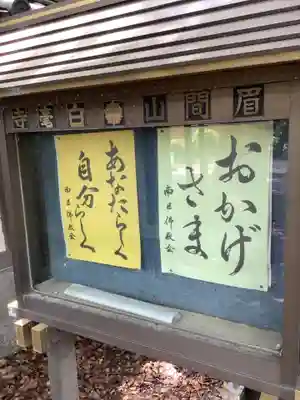 眉間山白毫寺
おかげ
さま
南区佛教会
あなたらしく
自分らしく
南区佛教会